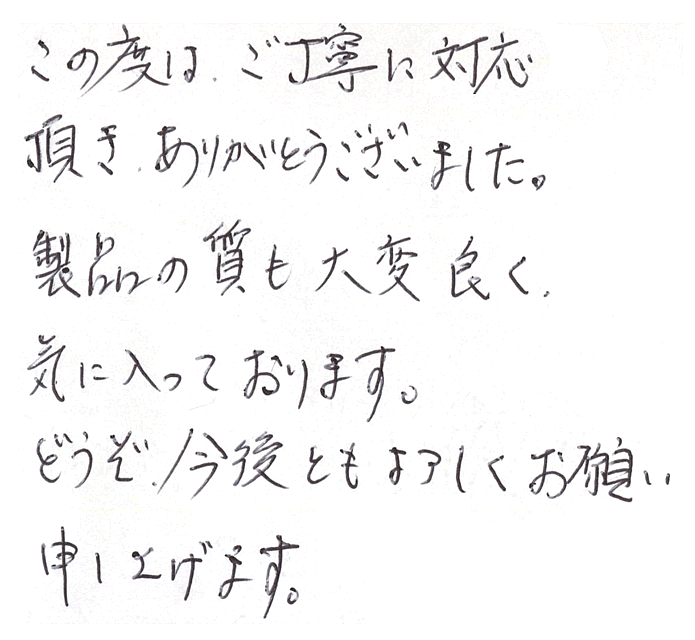 この度は、ご丁寧に対応
頂き、ありがとうございました。
製品の質も大変良く、
気に入っております。
どうぞ、今後ともよろしくお願い
申し上げます。